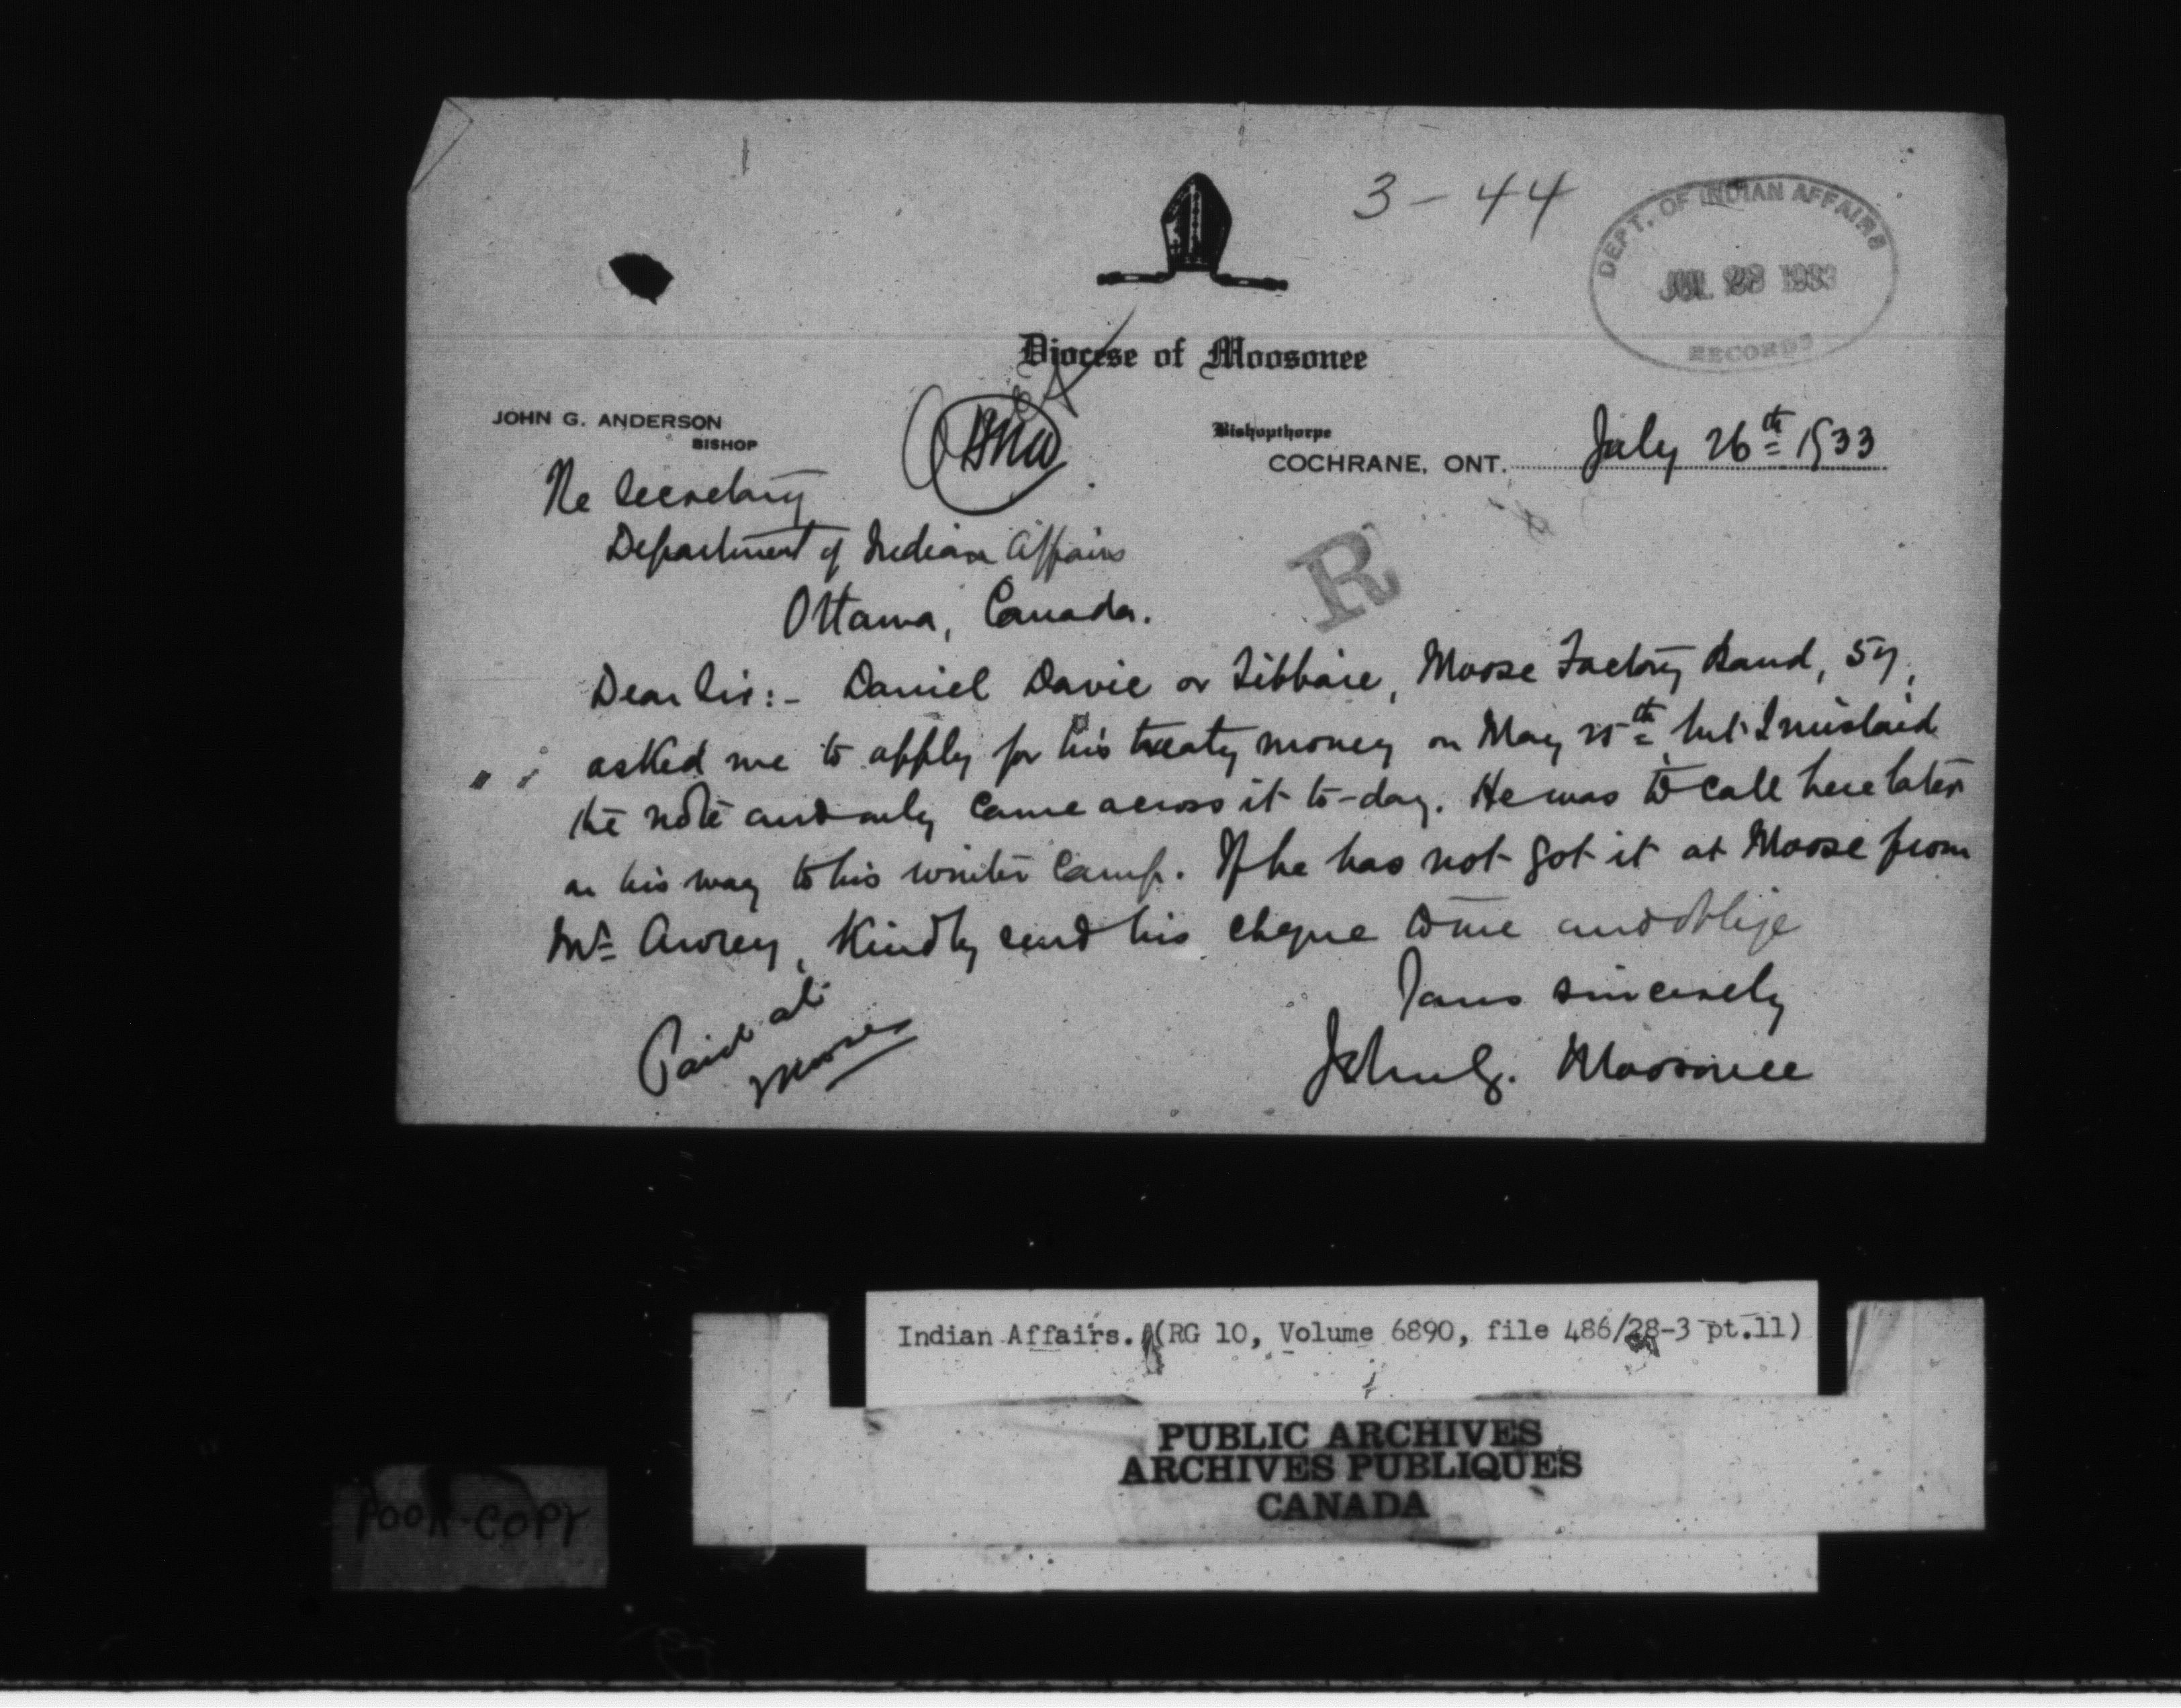 3-44
DEPT. OF INDIAN AFFAIRS
JUL 28 1933
RECORDS
Diocese of Moosonee
JOHN G. ANDERSON
BISHOP
Bishopthorpe
COCHRANE, ONT. July 26th 1933
The Secretary
Department of Indian Affairs
Ottawa, Canada.
R
Dear Sir:- Daniel Davie or, Moose Factory Band, 57,
asked me to apply for his treaty money on May 25th but I mislaid
the note and only came across it to-day. He was to call here later
on his way to his winter camp. If he has not got it at Moose from
Mr Awrey, kindly send his cheque to me and oblige
Yours sincerely
John G. Moosonee
Paid at
Moose
Indian Affairs. (RG 10, Volume 6890, file 486/28-3 pt.11)
PUBLIC ARCHIVES
ARCHIVES PUBLIQUES
CANADA
POOR COPY